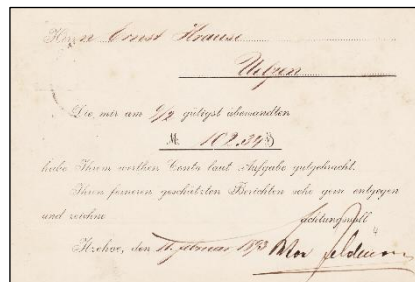 Herrn Ernst Krause
Uelzen
Die mir am 9/2 gütigst übersandten
M 102.39
habe Ihrem werthen Conto laut Aufgabe gutgebracht.
Ihren ferneren geschätzten Berichten sehe gern entgegen
und zeichne
achtungsvoll
Itzehoe, den 11. Februar 1893